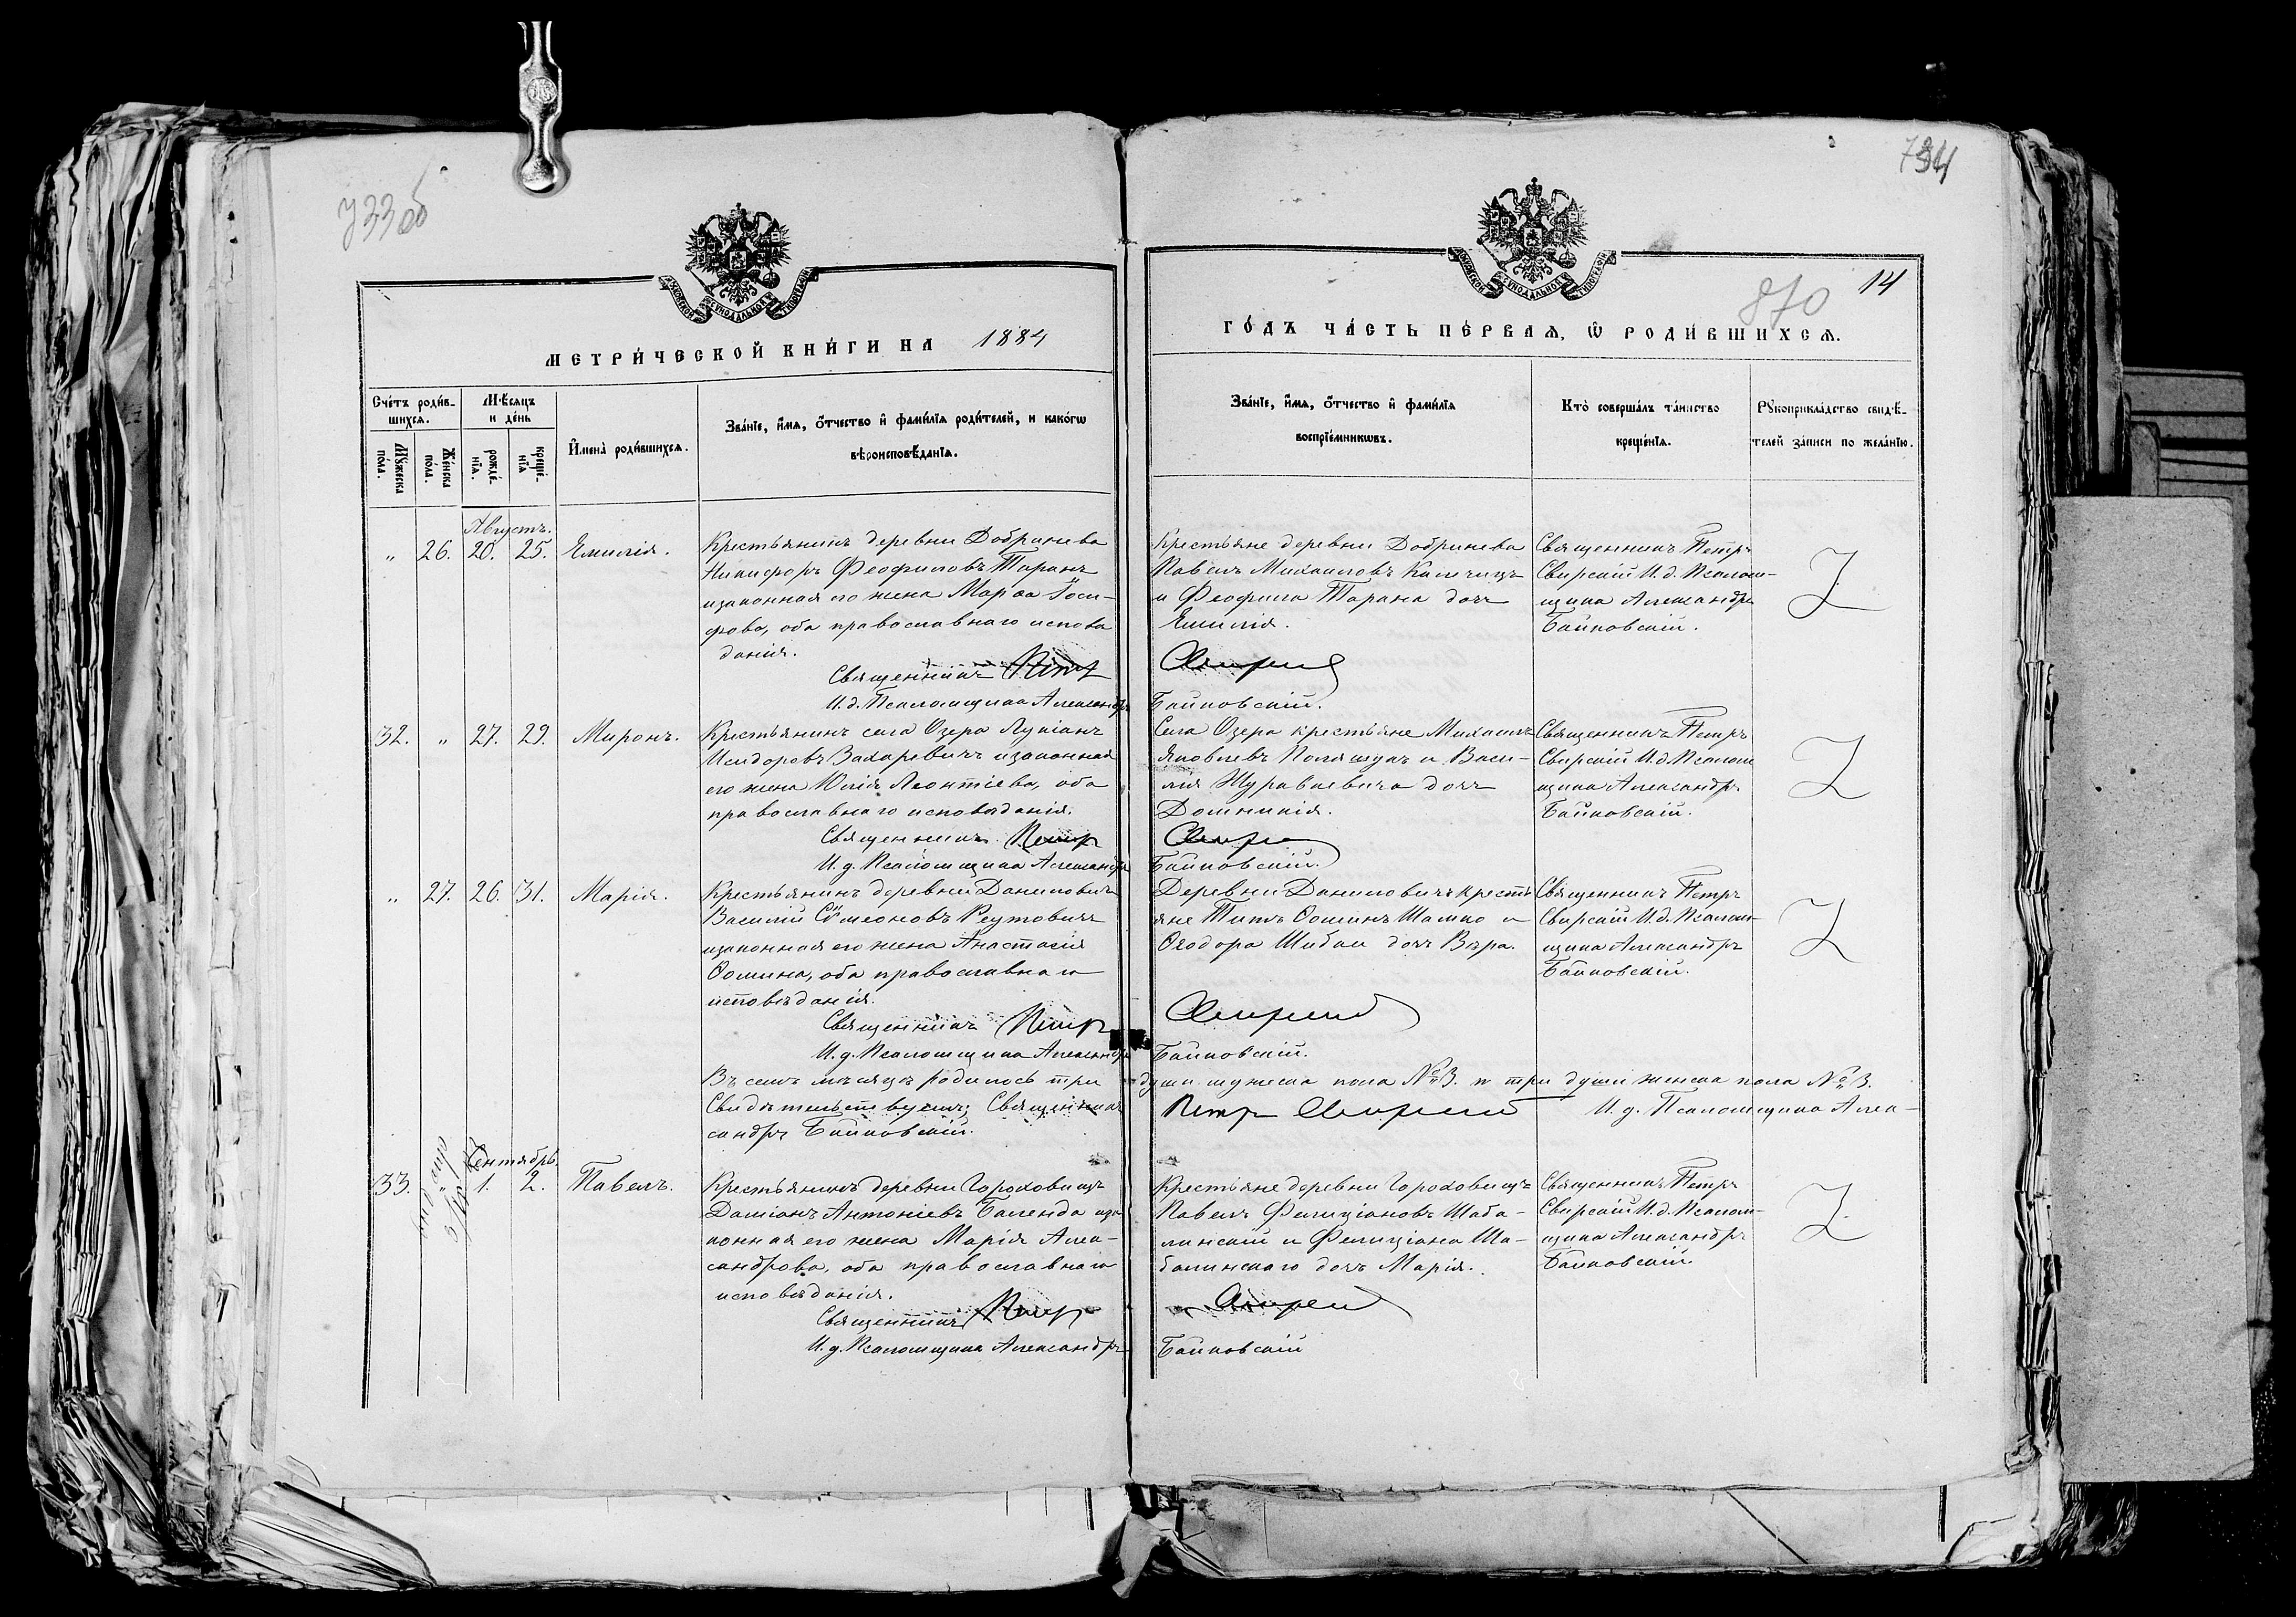 733об
734
870
14
МОСКОВСКОЙ СѴНОДАЛЬНОЙ ТИПОГРАФІИ
МОСКОВСКОЙ СѴНОДАЛЬНОЙ ТИПОГРАФІИ
МЕТРИ́ЧЕСКОЙ КНИ́ГИ НА 1884
ГО́ДЪ ЧА́СТЬ ПЕ́РВАЯ, Ѿ РОДИ́ВШИХСЯ.
Сче́тъ роди́в-
шихся.
Му́жеска
по́ла.
Же́нска
по́ла.
Мѣ́сяцъ
и де́нь
рожде́-
нїя.
креще́-
нїя
И́мена роди́вшихся.
Зва́нїе, и́мя, ѻ́тчество и фами́лїя роди́телей, и како́гѡ
вѣроисповѣ́данїя.
Зва́нїе, и́мя, ѻ́тчество и фами́лїя
воспрїе́мникѡвъ.
Кто̀ соверша́лъ та́инство
креще́нїя.
Рꙋкоприкла́дство свидѣ́-
телей за́писи по жела́нїю.
Августъ.
„ 26. 20. 25. Емилія.
Крестьянинъ деревни Добринева
Никифоръ Феофиловъ Таранъ
изаконная его жена Марѳа Іоси-
фова, оба православнаго испове
данія.
Священникъ Петръ
И. д. Псаломщика Александръ
Крестьяне деревни Добринева
Павелъ Михаиловъ
и Феофила Тарана дочь
Емилія.
Свирскій
Байковскій.
Священникъ Петръ
Свирскій И. д. Псалом-
щика Александръ
Байковскій.
32. „ 27. 29. Миронъ.
Крестьянинъ села Озера Лукіанъ
Исидоровъ Захаревичъ изаконная
его жена Юлія Леонтіева, оба
православнаго исповѣданія.
Священникъ Петръ
И. д. Псаломщика Александръ
Села Озера крестьяне Михаилъ
Яковлевъ Полящукъ и Васи-
лія Журавлевича дочь
Домникія.
Свирскій
Байковскій.
Священникъ Петръ
Свирскій И. д. Псалом
щика Александръ
Байковскій.
„ 27. 26. 31. Марія.
Крестьянинъ деревни Даниловичъ
Василій Сѵмеоновъ Реутовичъ
изаконная его жена Анастасія
Ѳомина, оба православнаго
исповѣданія.
Священникъ Петръ
И. д. Псаломщика Александръ
Деревни Даниловичъ кресть
яне Титъ Ѳоминъ Шамко и
Ѳеодора Шибаи дочь Вѣра.
Свирскій
Байковскій.
Священникъ Петръ
Свирскій И. д. Псалом-
щика Александръ
Байковскій.
Въ семъ мѣсяцѣ родилось три души мужеска пола № 3. и три души женска пола № 3.
Свидѣтельствуемъ; Священникъ Петръ Свирскій И. д. Псаломщика Алек-
сандръ Байковскій.
Сентябрь.
33. „ 1. 2. Павелъ.
Крестьянинъ деревни Гороховищъ
Даміанъ Антоніевъ Баленда иза
конная его жена Марія Алек-
сандрова, оба православнаго
исповѣданія.
Священникъ Петръ
И. д. Псаломщика Александръ
Крестьяне деревни Гороховищъ
Павелъ Фелиціановъ Шаба-
линскій и Фелиціана Ша-
балинскаго дочь Марія.
Свирскій
Байковскій
Священникъ Петръ
Свирскій И. д. Псалом-
щика Александръ
Байковскій.